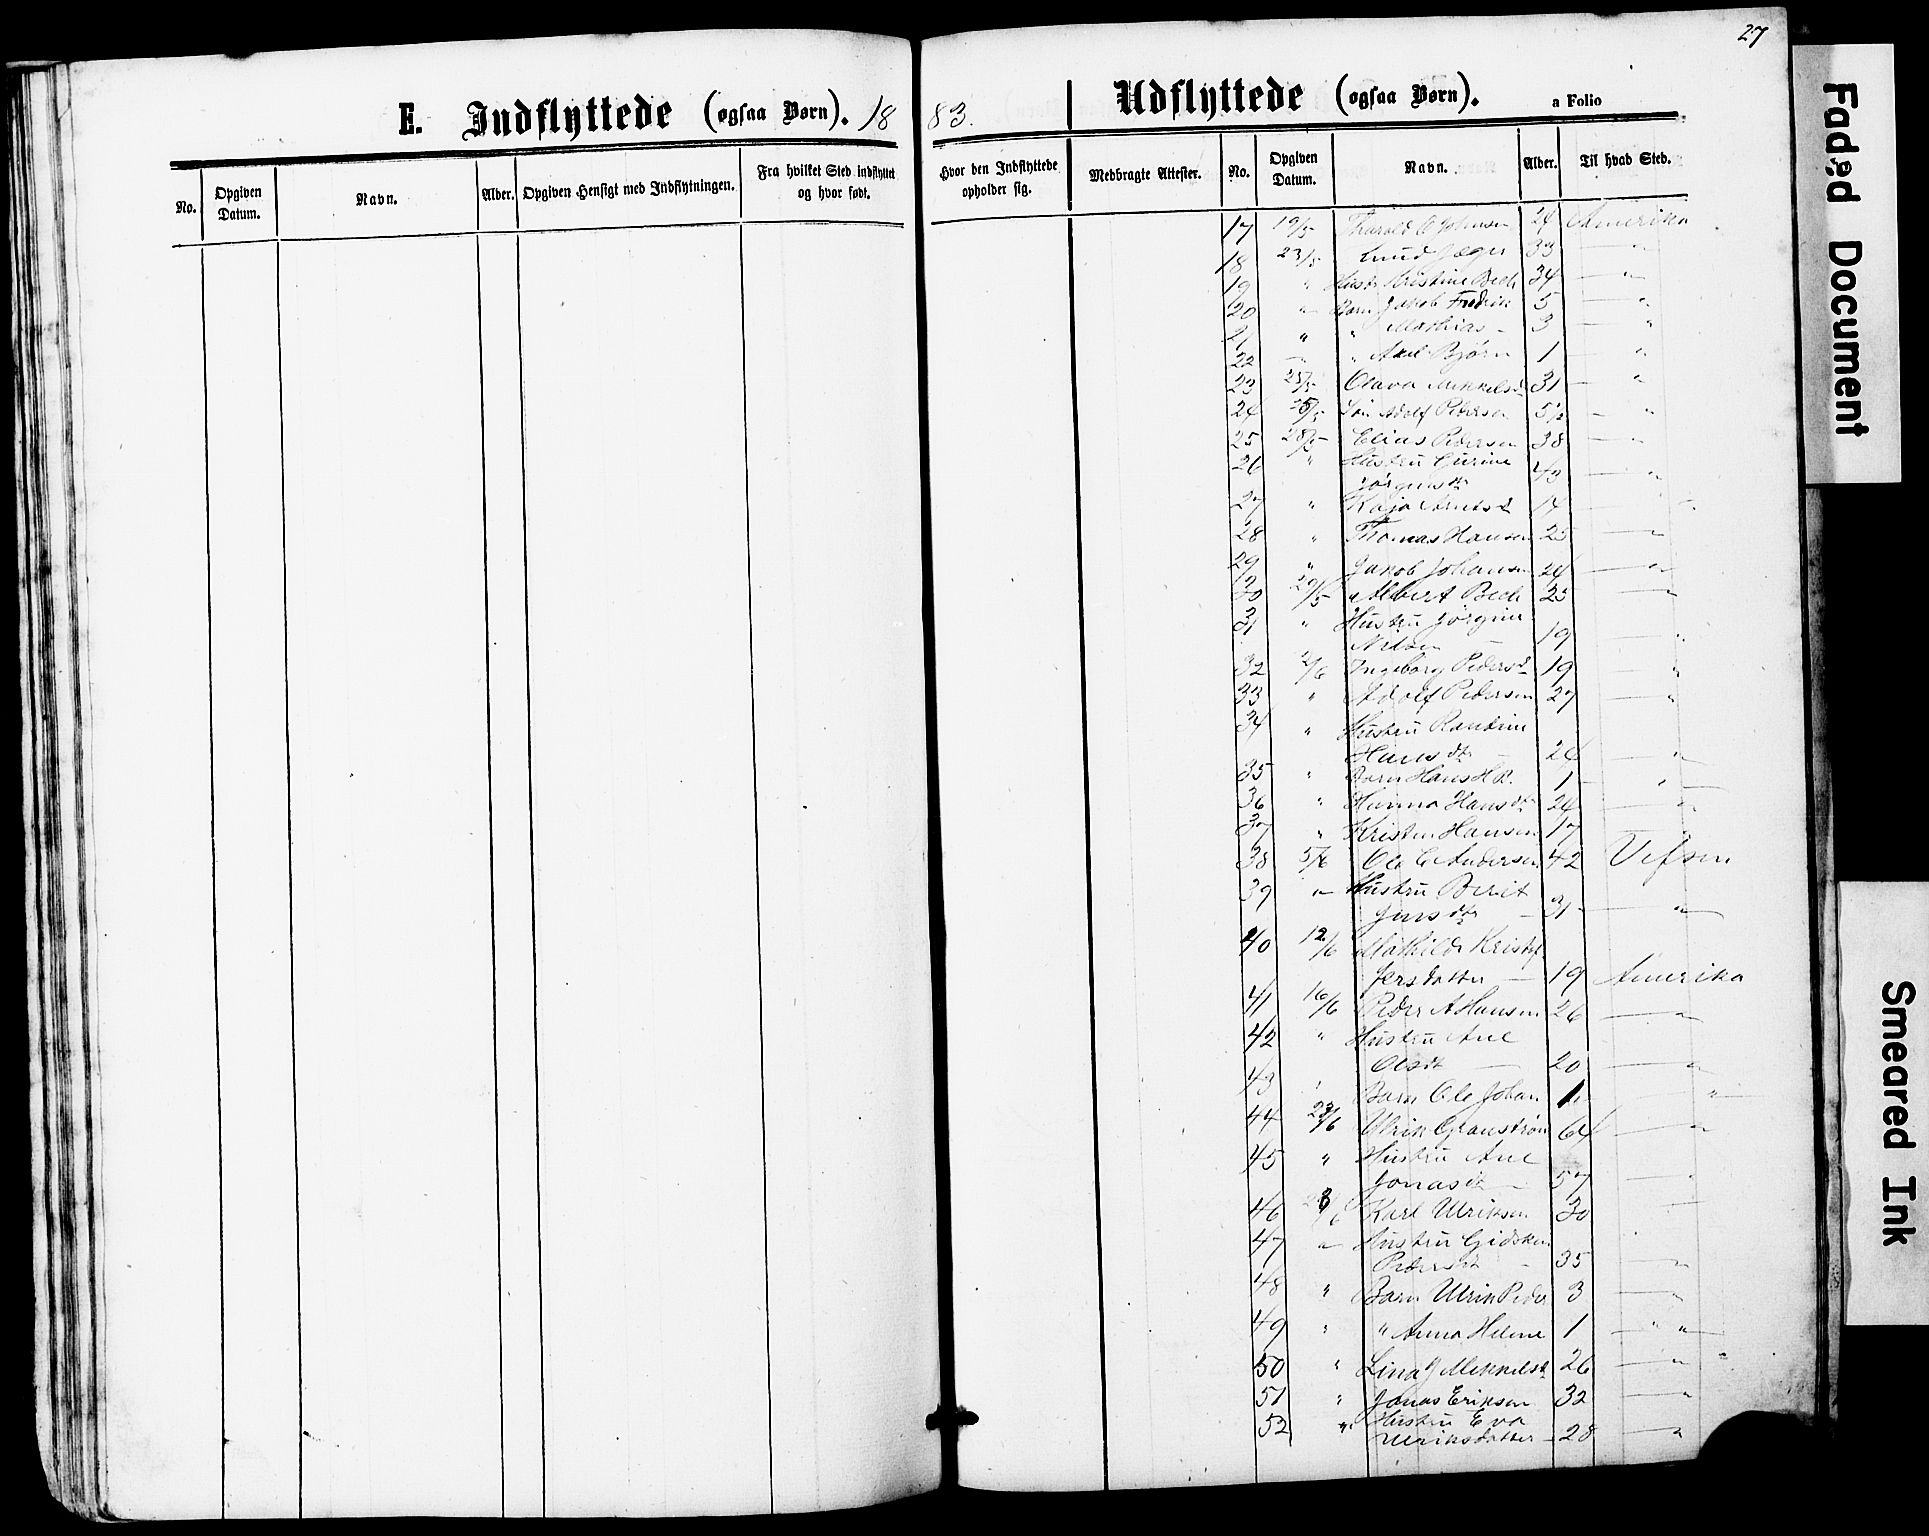 27
E. Indflyttede (ogsaa Børn). 18 83. Udflyttede (ogsaa Børn). a Folio
No. Opgiven Datum. Navn. Alder. Opgiven Hensigt med Indflytningen. Fra hvilket Sted indflyttet og hvor født. Hvor den Indflyttede opholder sig. Medbragte Attester. No. Opgiven Datum. Navn. Alder. Til hvad Sted.
17 19/5 Tharald O Johnsen 24 Amerika
18 23/5 Knud Jæger 33 — "
19 " Hustr Kristine Bech 34 — "
20 " Barn Jakob Fredrik 5 — "
21 " " Mathias - 3 — "
22 — " Axel Bjørn 1 — "
23 25/5 Olava Mikkelsd 31 — "
24 25/5 Søn Adolf Pedersen 5½ — "
25 28/5 Elias Pedersen 38 — "
26 " Hustru Gurine
Jørgensdtr 43 — "
27 " Kaja Arntsd 14 — "
28 " Thomas Hansen 25 — "
29 " Jakob Johansen 24 — "
30 29/5 Albert Bech 25 — "
31 " Hustru Jørgine
Nilsen 19 — "
32 2/6 Ingeborg Pedersd 19 — "
33 " Adolf Pedersen 27 — "
34 " Hustru Rantine
Hansdtr 24 — "
35 " Barn Hans H P. 1 — "
36 " Hanna Hansdtr 24 — "
37 " Kristen Hansen 17 — "
38 5/6 Ole C Andersen 42 Vefsen
39 " Hustru Berit
Jensdtr — 31 — "
40 12/6 Mathilde Kristof
fersdatter — 19 Amerika
41 16/6 Peder A Hansen 26 — "
42 " Hustru Ane
Olsdt — 20 — "
43 " Barn Ole Johan 1 — "
44 23/6 Ulrik Granstrøm 64 — "
45 " Hustru Ane
Jonasdt — 57 — "
46 23/6 Karl Ulriksen 30
47 " Hustru Gidsken
Pedersdt - 35 — "
48 " Barn Ulrik Peder 3 — "
49 " " Anna Helene 1 — " "
50 " Lina J Mikkelsd 26 — "
51 " Jonas Eriksen 32 — "
52 " Hustru Eva
Ulriksdatter - 28 — "
Faded Document
Smeared Ink